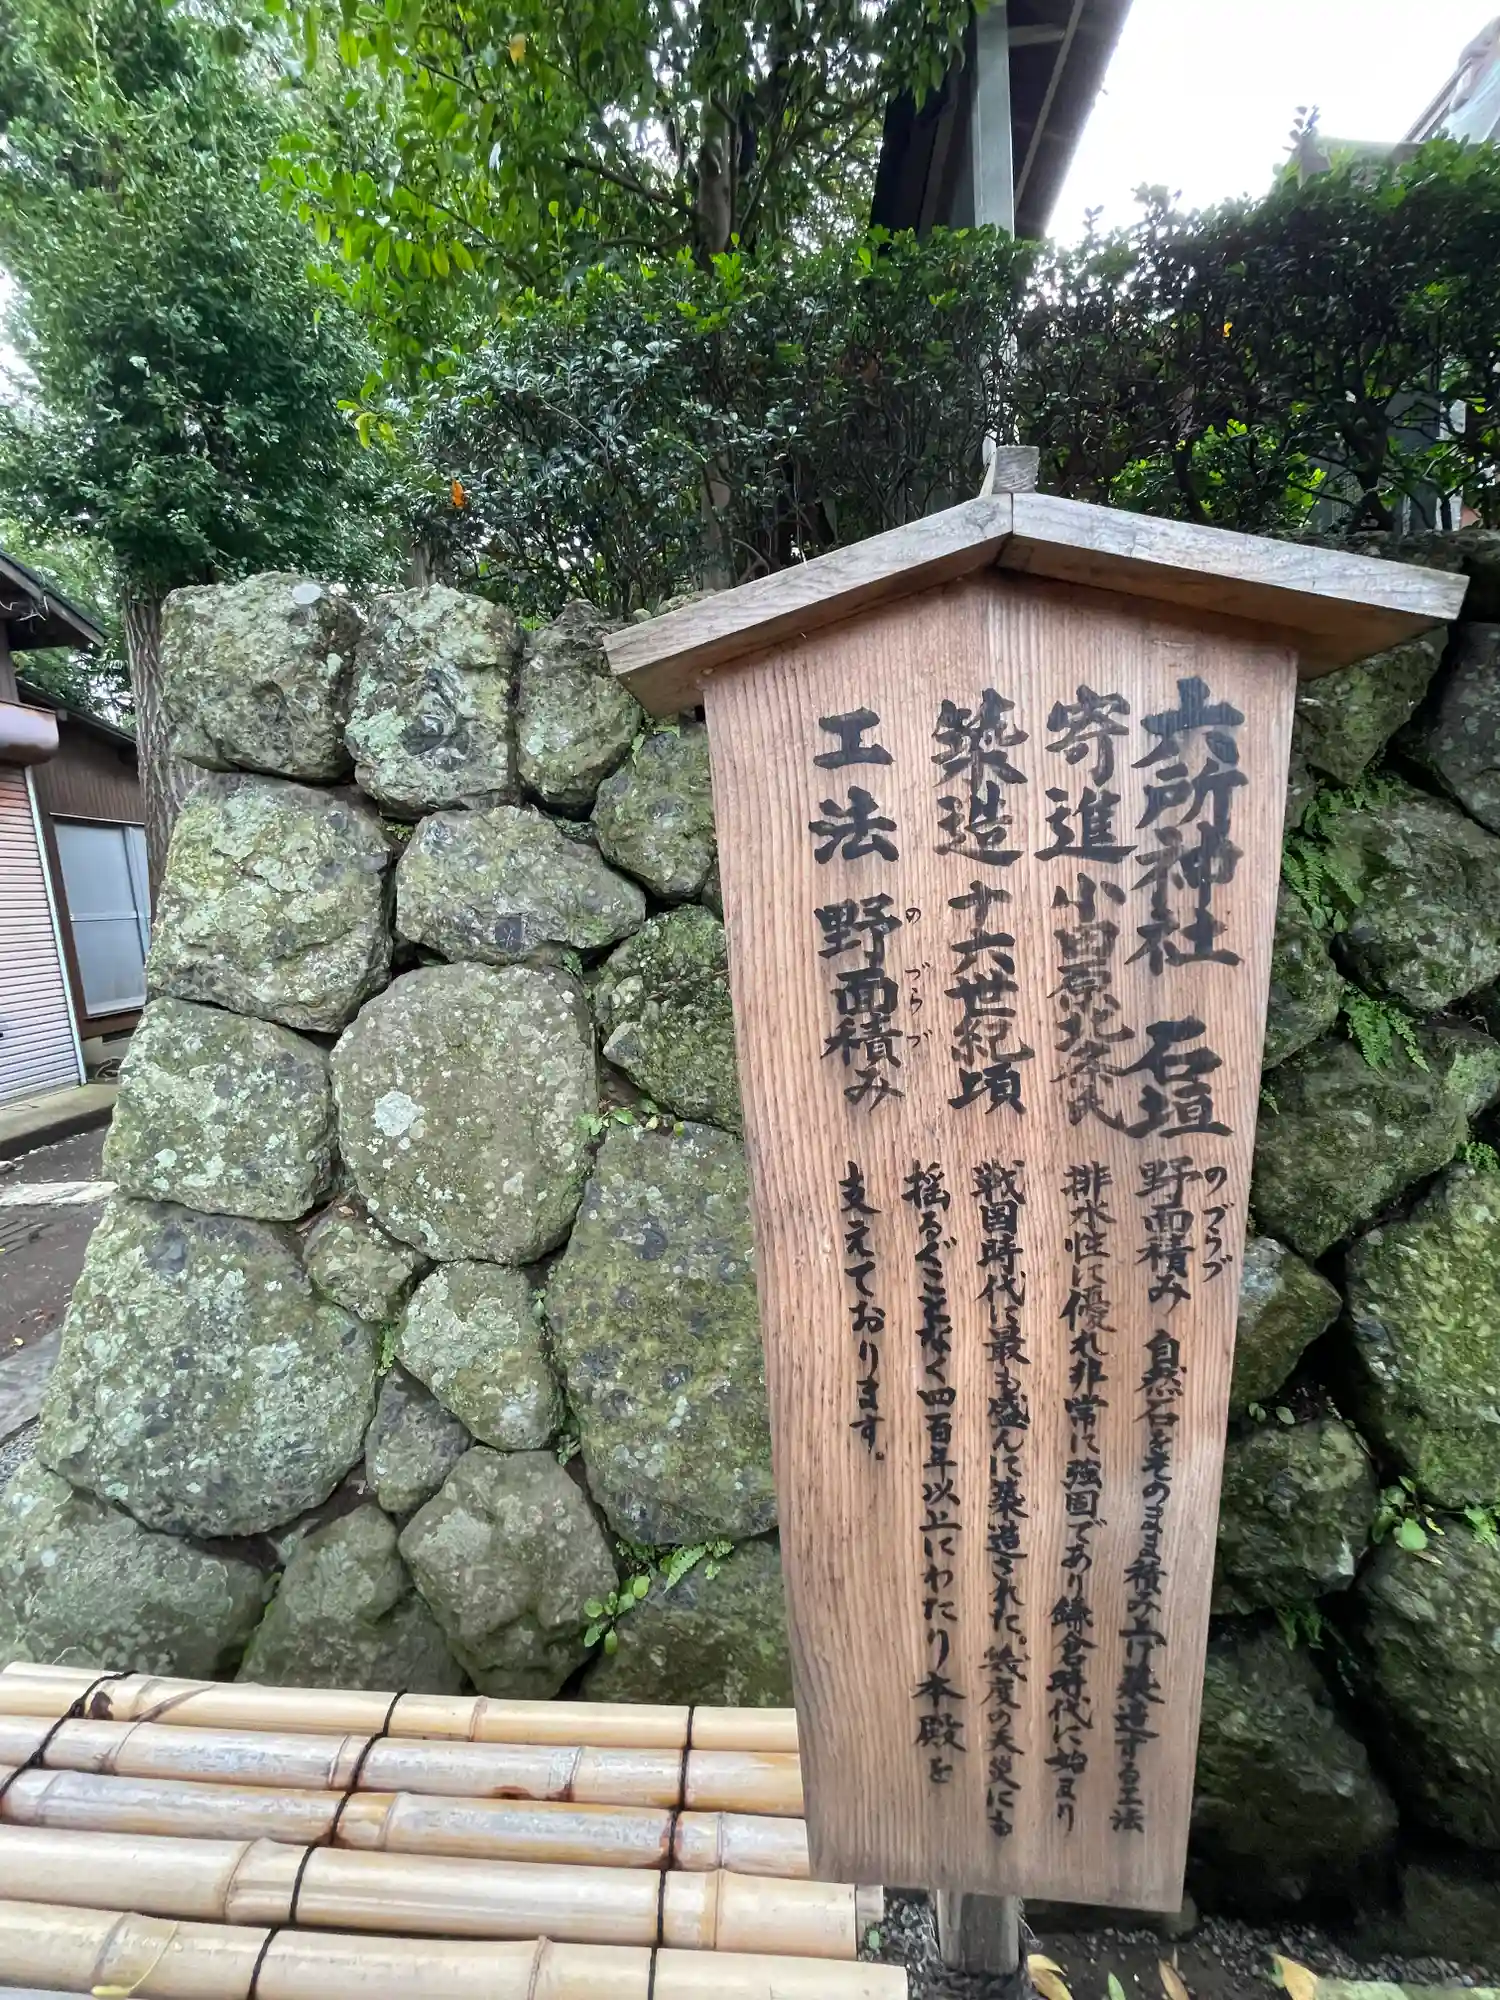 六所神社 石垣
寄進 小田原北条氏
築造 十六世紀頃
工法 野面積み
の づらづ
の づらづ
野面積み 自然石をそのまま積み上げ築造する工法
排水性に優れ非常に強固であり鎌倉時代に始まり
戦国時代に最も盛んに築造された。幾度の天災にも
揺るぐことなく四百年以上にわたり本殿を
支えております。